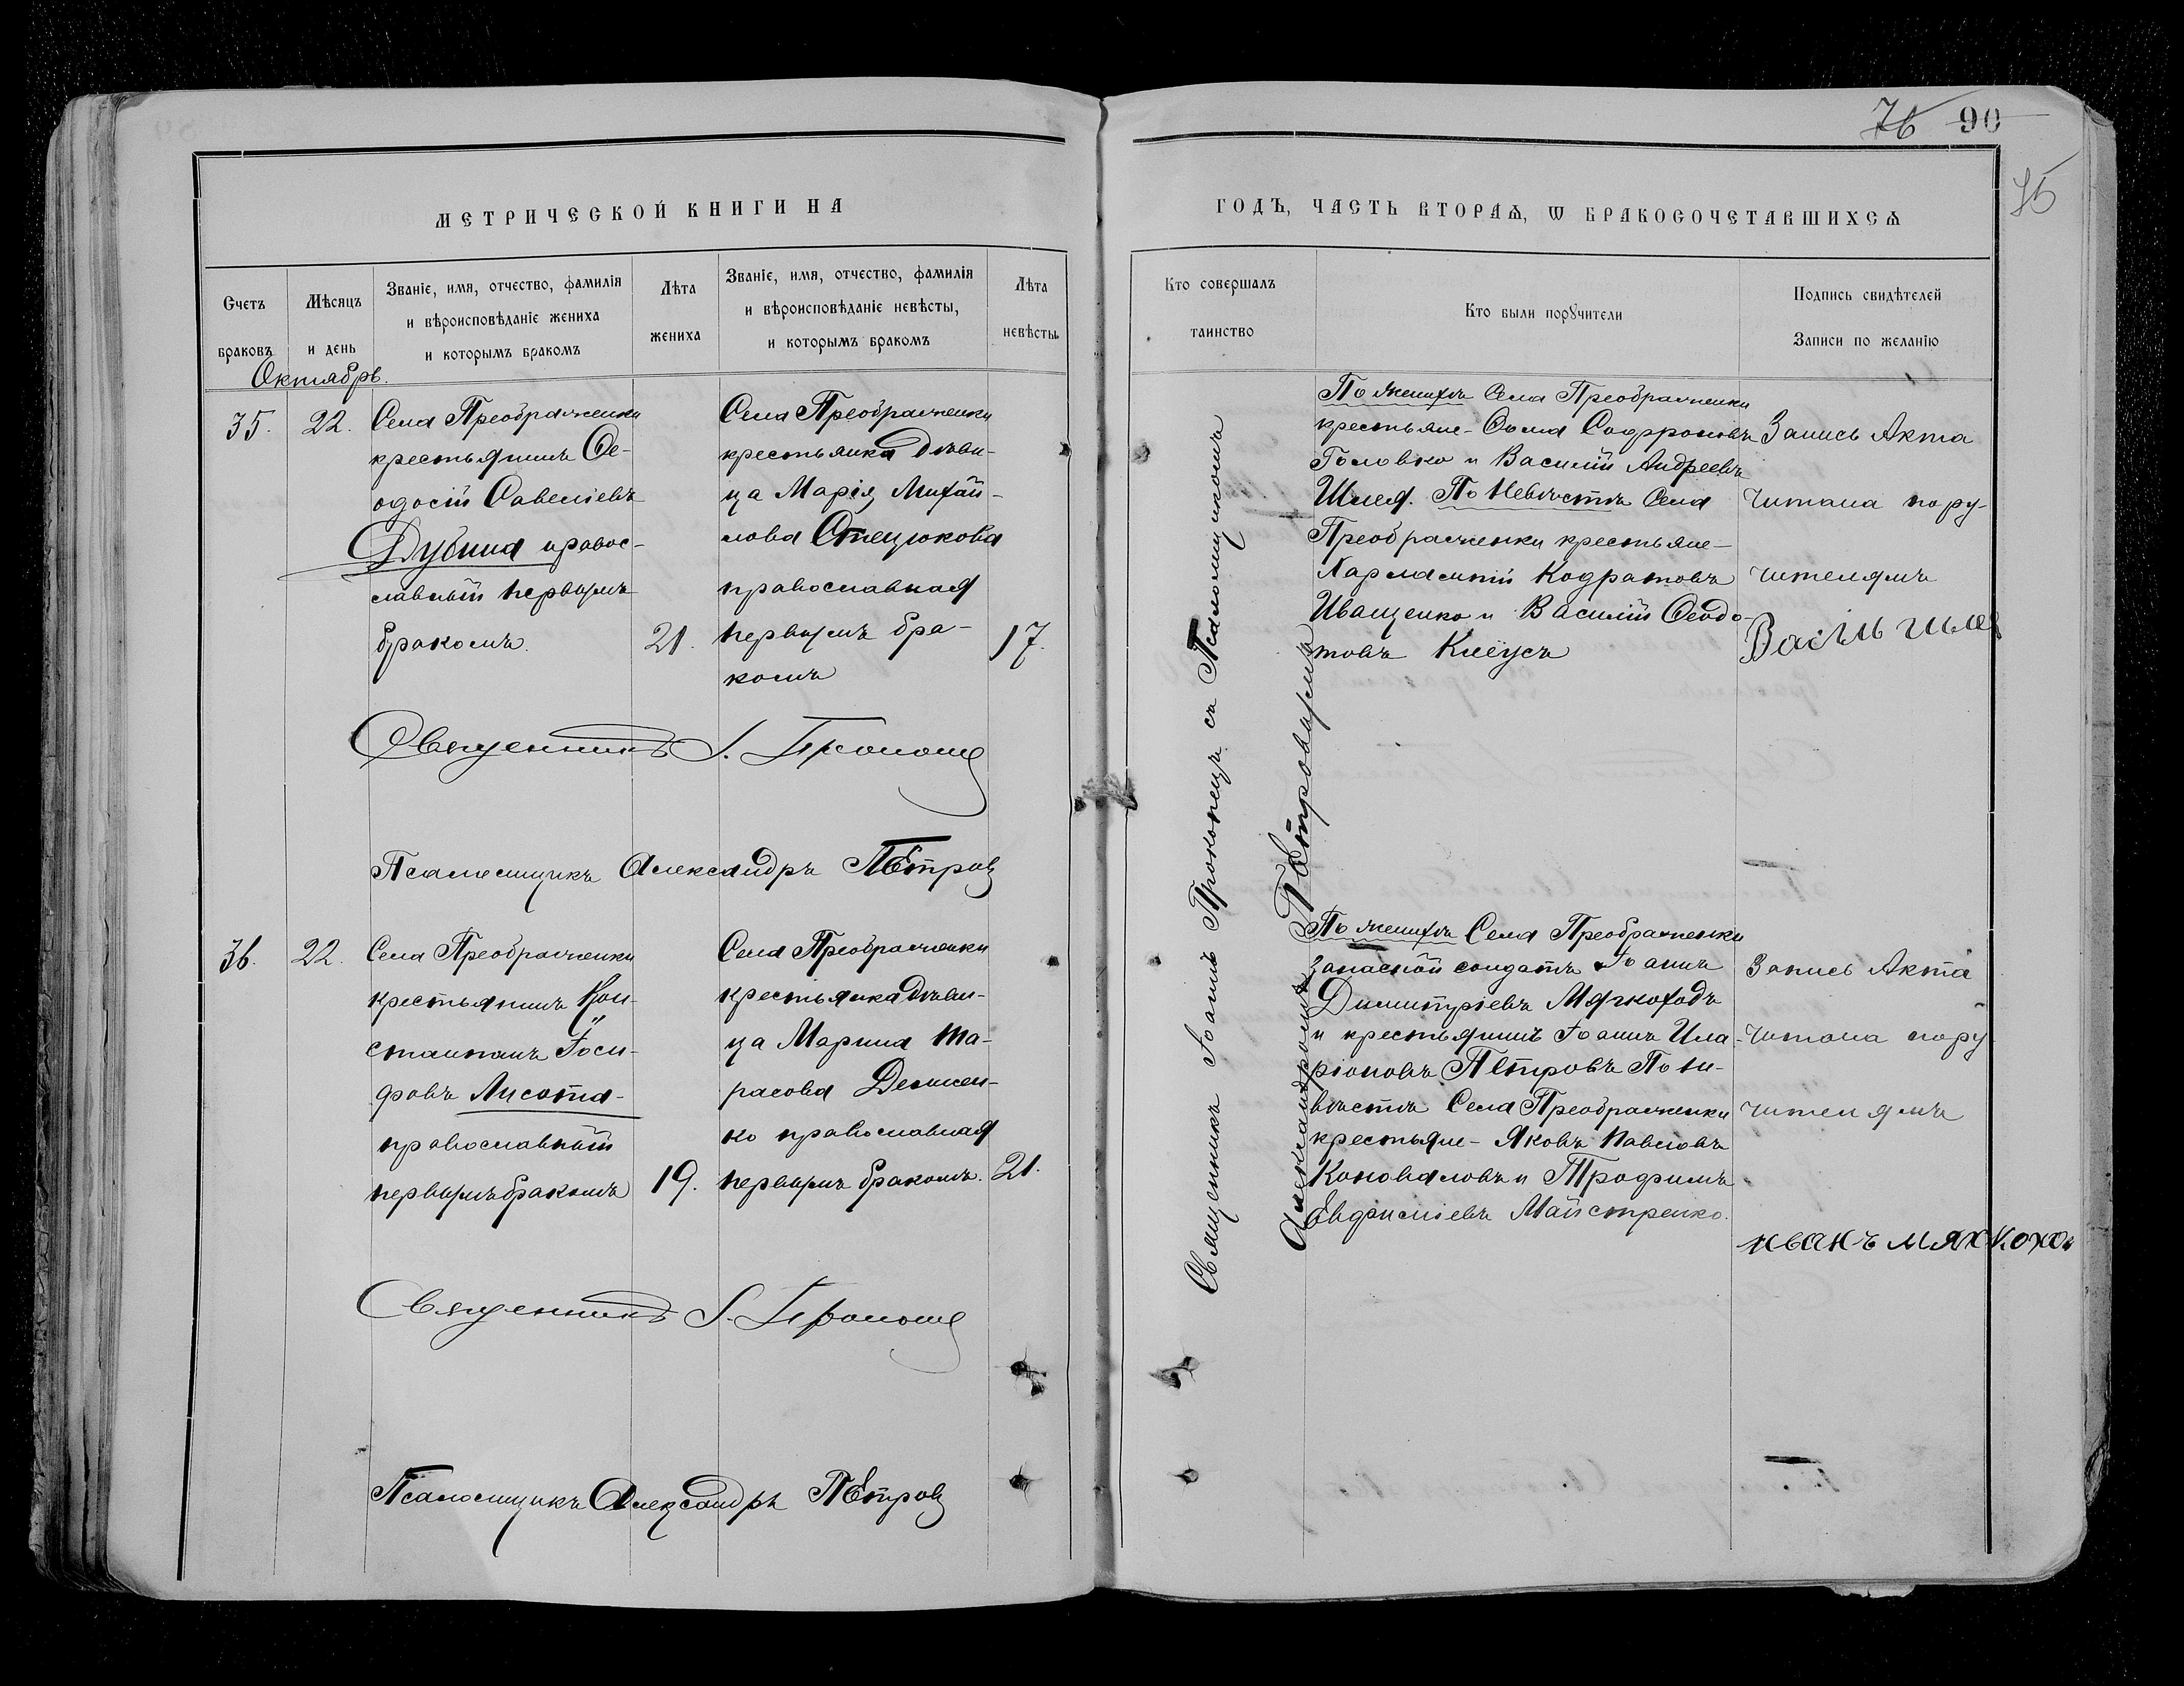 76 90
75
МЕТРИЧЕСКОЙ КНИГИ НА
ГОДЪ, ЧАСТЬ ВТОРАѦ, Ѡ БРАКОСОЧЕТАВШИХСѦ
Счетъ
браковъ
Мѣсяцъ
и день
Званіе, имя, отчество, фамилія
и вѣроисповѣданіе жениха
и которымъ бракомъ
Лѣта
жениха
Званіе, имя, отчество, фамилія
и вѣроисповѣданіе невѣсты,
и которымъ бракомъ
Лѣта
невѣсты.
Кто совершалъ
таинство
Кто были порꙋчители
Подпись свидѣтелей
Записи по желанію
Октябрь.
35.
22.
Села Преображенки
крестьянинъ Ѳе-
одосій Савеліевъ
Дубина правос-
лавный первымъ
бракомъ.
21.
Села Преображенки
крестьянка дѣви-
ца Марія Михай-
лова Стецюкова
православная
первымъ бра-
комъ
17.
Священникъ І. Прокопец
Псаломщикъ Александръ Пётровъ
Священникъ Іоаннъ Прокопецъ съ Псаломщикомъ
Александромъ Пётровымъ
По женихѣ Села Преображенки
крестьяне - Ѳома Софроновъ
Головко и Василій Андреевъ
Шлея. По Невѣстѣ Села
Преображенки крестьяне -
Харлампій Кодратовъ
Иващенко и Василій Ѳеодо-
товъ Клёусъ
Запись Акта
читана пору-
чителямъ
36.
22.
Села Преображенки
крестьянинъ Кон-
стантинъ Іоси-
фовъ Лисота -
православный
первымъ бракомъ
19.
Села Преображенки
крестьянка дѣви-
ца Марина Та-
расова Демжен-
ко православная
первымъ бракомъ.
21.
Священникъ І. Прокопец
Псаломщикъ Александръ Пётровъ
По женихѣ Села Преображенки
запасной солдатъ Іоаннъ
Димитріевъ Мягкоходъ
и крестьянинъ Іоаннъ Ила-
ріоновъ Пётровъ По не-
вѣстѣ Села Преображенки
крестьяне - Яковъ Павловъ
Коноваловъ и Трофимъ
Евфиміевъ Майстренко.
Запись Акта
читана пору-
чителямъ
иванъ мяхкохо